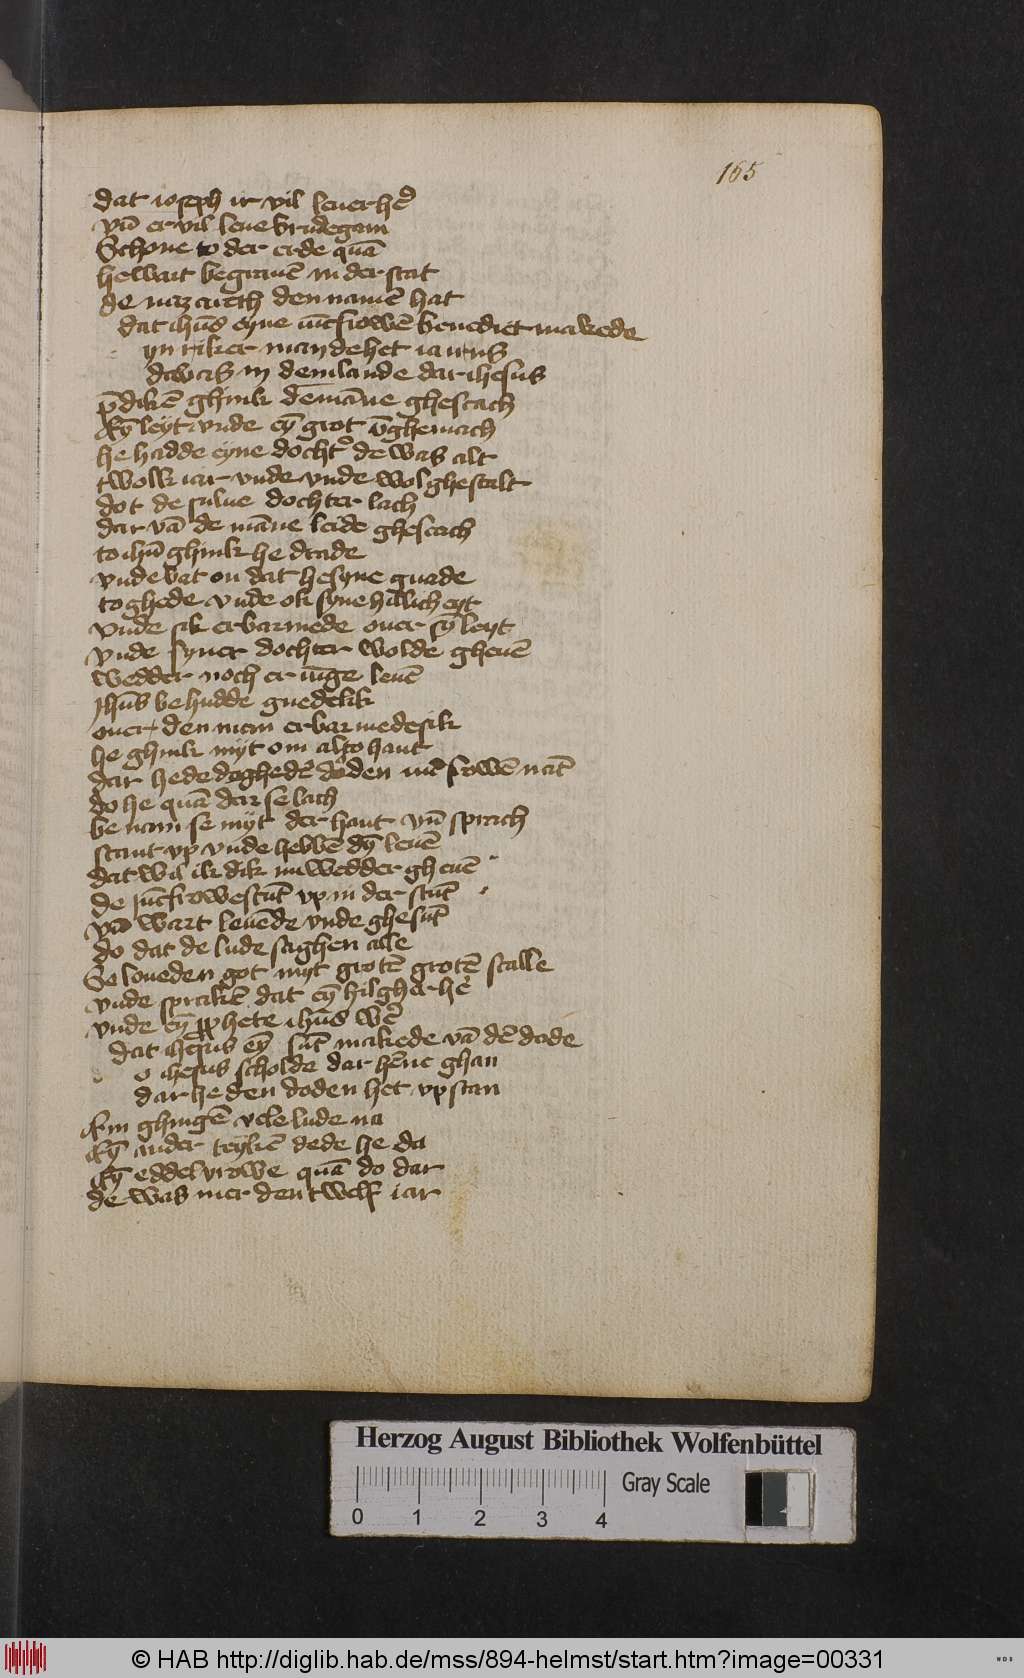 165
dat ioseph ir vil leuer hẽ
vñ er vil leue brudegam
Schone to der erde quã
he wart begrauẽ in der stat
de nazareth den namẽ hat
dat ihũs eyne iũcfrowẽ benedict makede
yn riker man de het iairus
de was in dem lande dar ihesus
p̄dikẽ ghink dem mãne ghescach
Eȳ leyt vnde eȳ grot v̄ghemach
he hadde eyne docht' de was alt
twolk iar vnde vnde wol ghestalt
dot de sulue dochter lach
dar vã de mãne leide ghescach
to ihũ ghink he drade
vnde bat on dat he syne gnade
toghede vnde ok syne hillicheyt
vnde sik erbarmede ouer sȳ leyt
vnde syner dochter wolde gheuẽ
wedder noch er iũge leuẽ
Ihũs behudde guedelik
ouer den man erbarmede sik
he ghink myt om alto hant
dar he de doghedẽ doden iũcfrowẽ vant
do he quã dar se lach
he nam se myt der hant vñ sprach
stant vp vnde hebbẽ dȳ leuẽ
dat wil ik dik nu wedder gheuẽ
de iũcfrowe stũt vp in der stũt
vñ wart leuẽde vnde ghesũt
do dat de lude saghen alle
Se loueden got myt grotẽ grotẽ scalle
vnde sprakẽ dat eȳ hilgher hẽ
vnde eȳ pphete ihũs wẽ
dat ihesus eȳ sũt makede vã dẽ dode
o ihesus scholde dar hẽne ghan
dar he den doden het vp stan
Em ghingẽ vele lude na
Eȳ ander teykẽ dede he da
Eȳ eddel vrowe quã do dar
de was mer den twelf iar
Herzog August Bibliothek Wolfenbüttel
0 1 2 3 4
Gray Scale
© HAB http://diglib.hab.de/mss/894-helmst/start.htm?image=00331